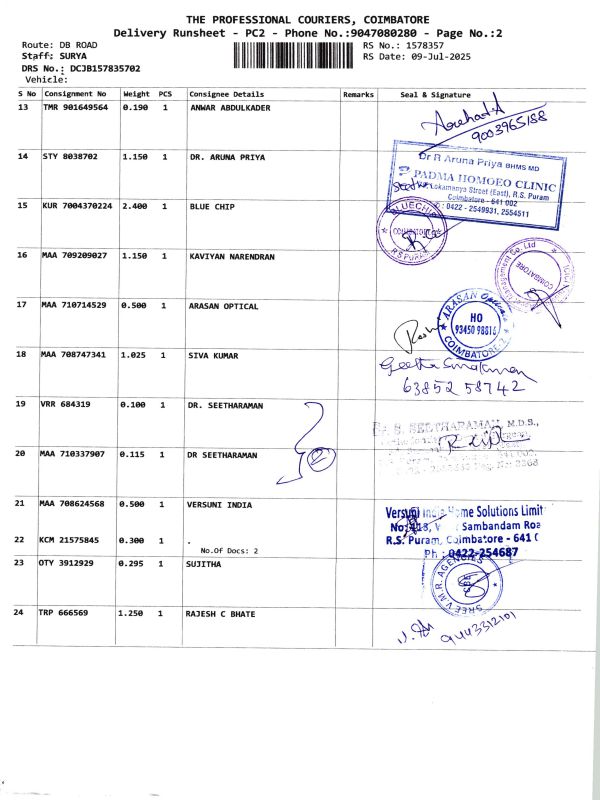 THE PROFESSIONAL COURIERS, COIMBATORE
Delivery Runsheet - PC2 - Phone No.:9047080280 - Page No.:2
Route: DB ROAD
RS No.: 1578357
Staff: SURYA
RS Date: 09-Jul-2025
DRS No.: DCJB157835702
Vehicle:
S No Consignment No Weight PCS Consignee Details Remarks Seal & Signature
13 TMR 901649564 0.190 1 ANWAR ABDULKADER
9003965188
14 STY 8038702 1.150 1 DR. ARUNA PRIYA
Dr R Aruna Priya BHMS MD
PADMA HOMOEO CLINIC
Lokamanya Street (East), R.S. Puram
Coimbatore - 641 002
: 0422 - 2549931, 2554511
15 KUR 7004370224 2.400 1 BLUE CHIP
BLUECHIP
COIMBATORE
R S PURAM
16 MAA 709209027 1.150 1 KAVIYAN NARENDRAN
Management Co. Ltd
COIMBATORE
17 MAA 710714529 0.500 1 ARASAN OPTICAL
ARASAN
HO
93450 98816
COIMBATORE-2
18 MAA 708747341 1.025 1 SIVA KUMAR
Geetha Sivakumar
63852 58742
19 VRR 684319 0.100 1 DR. SEETHARAMAN
S. SEETHARAMAN, M.D.S.,
20 MAA 710337907 0.115 1 DR SEETHARAMAN
2
21 MAA 708624568 0.500 1 VERSUNI INDIA
Versuni India Home Solutions Limit
No: 413, V Sambandam Roa
R.S. Puram, Coimbatore - 641 0
Ph : 0422-254687
22 KCM 21575845 0.300 1 .
No.Of Docs: 2
23 OTY 3912929 0.295 1 SUJITHA
SREE V.M.R. AGENCIES
24 TRP 666569 1.250 1 RAJESH C BHATE
9443312101